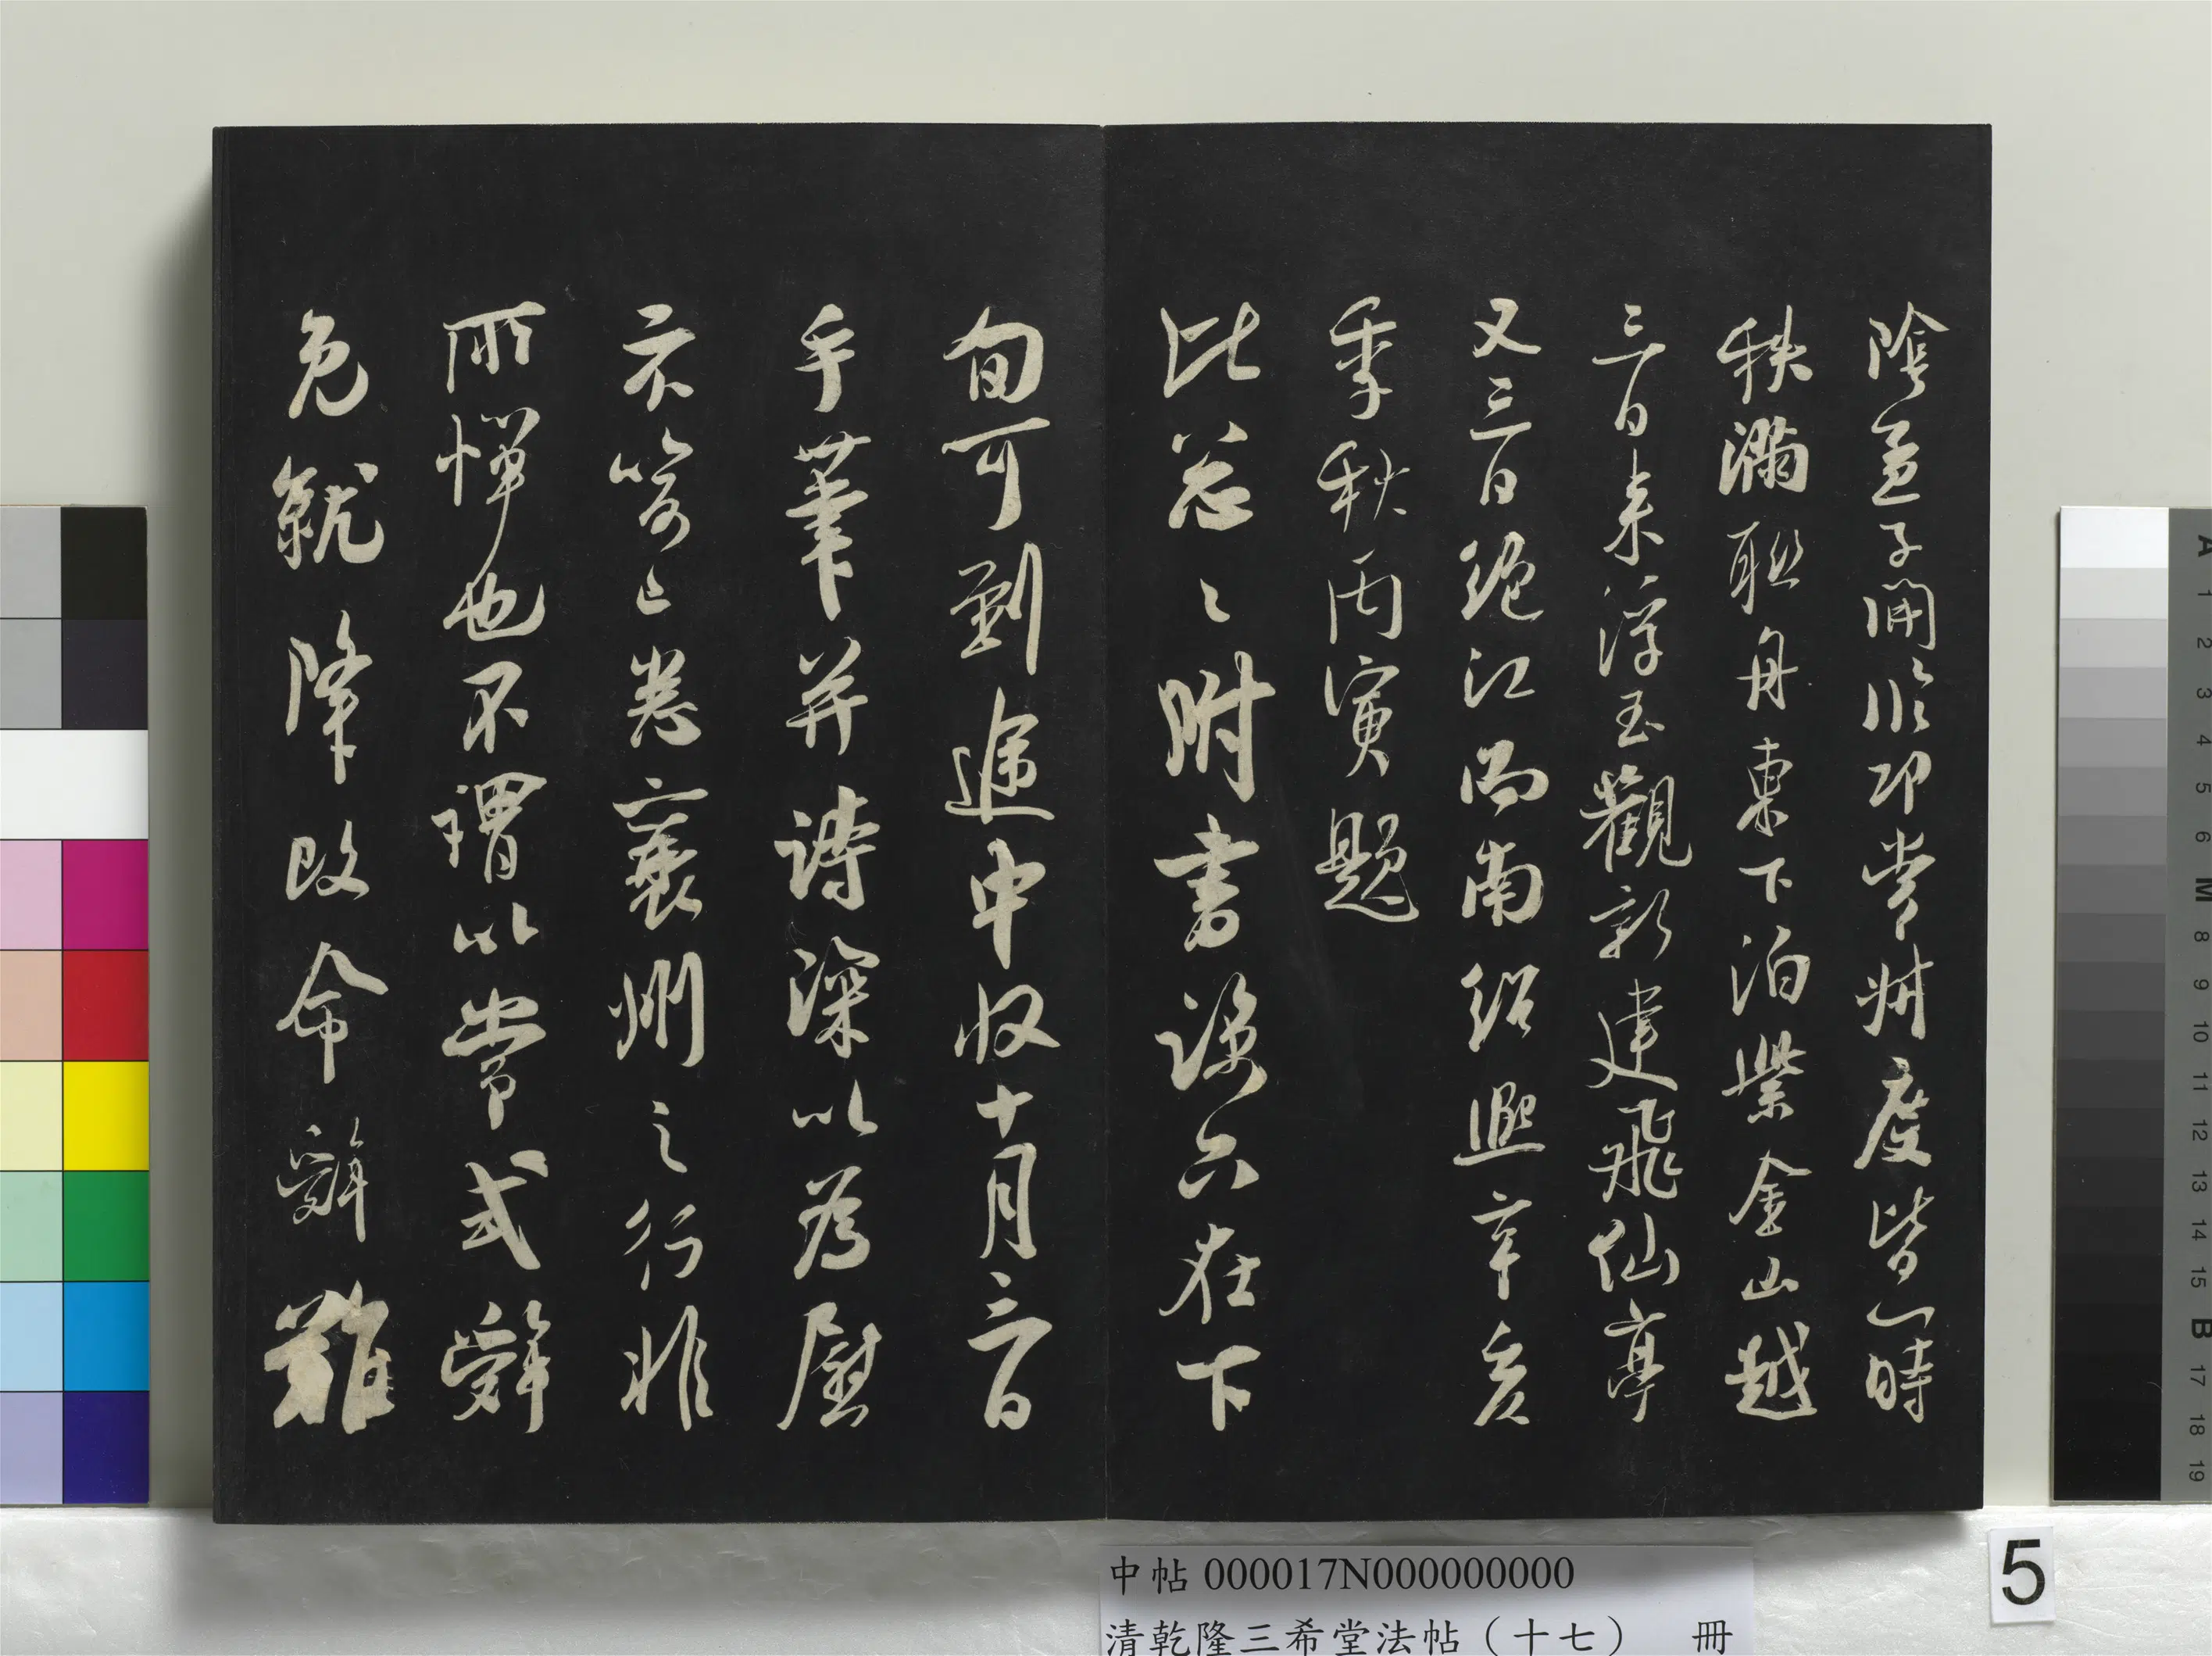 陰孟子開臨邛常州度皆一時
秩滿聯舟東下泊紫金山越
三日來浮玉觀新建飛仙亭
又三日絕江而南紹熙辛亥
季秋丙寅題
比茲〻附書語六在下
旬可到遞中收十月六日
手筆并詩深以為慰
示以筠卷襄州之行非
所憚也不謂以常式辭
免就降改命辭難
中帖 000017N000000000
清乾隆三希堂法帖（十七） 冊
5
A 1 2 3 4 5 6 M 8 9 10 11 12 13 14 15 B 17 18 19